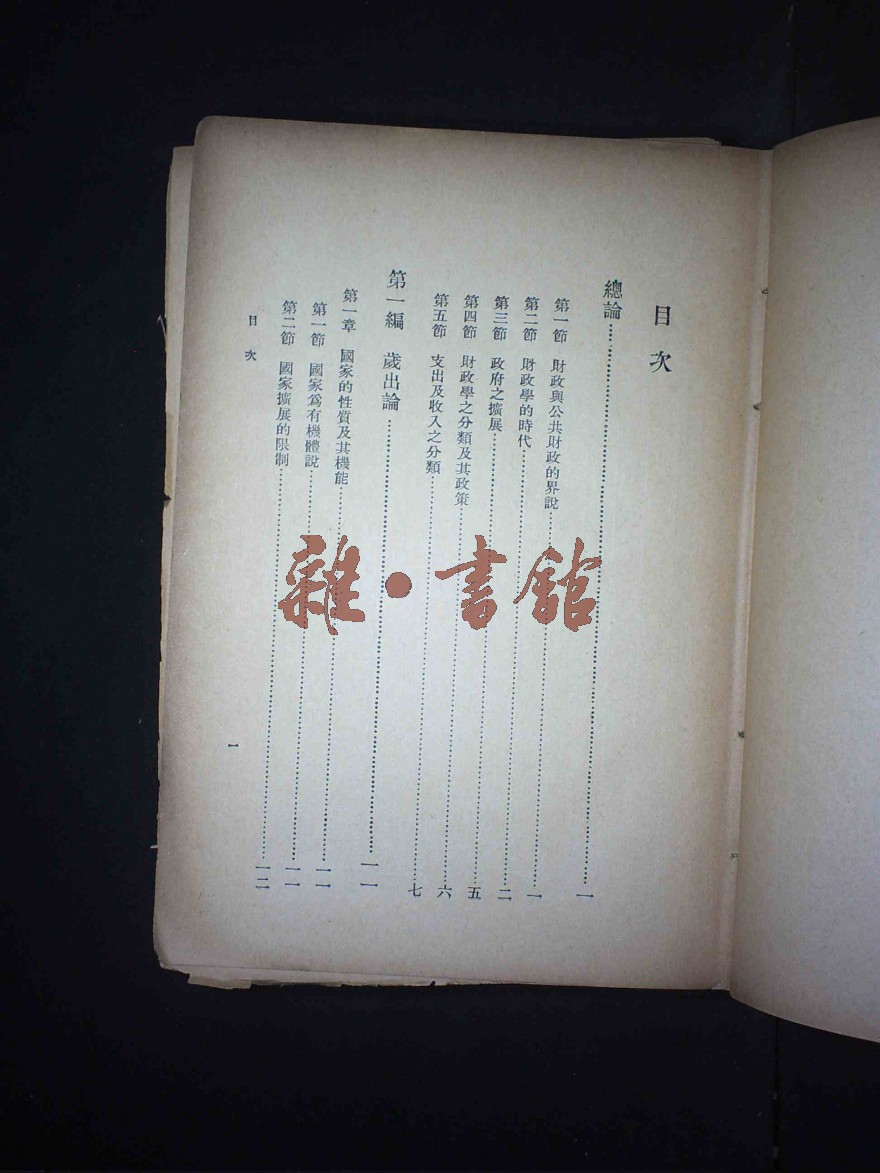 目次
總論……一
第一節 財政與公共財政的界說……一
第二節 財政學的時代……二
第三節 政府之擴展……五
第四節 財政學之分類及其政策……六
第五節 支出及收入之分類……七
第一編 歲出論……一一
第一章 國家的性質及其機能……一一
第一節 國家爲有機體說……一一
第二節 國家擴展的限制……一二
目次
一
雜·書館